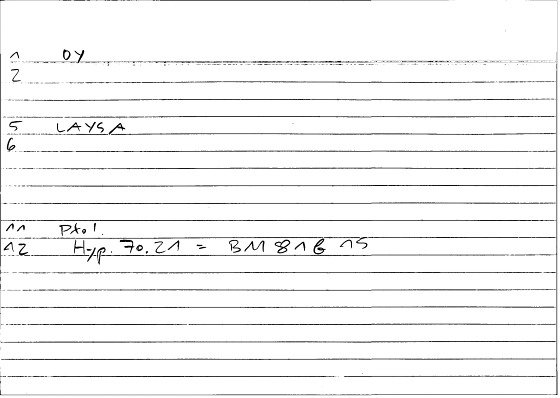 1 OY
2
5 LAYSA
6
11 Ptol.
12 Hyp. 70.21 = BM 816 15